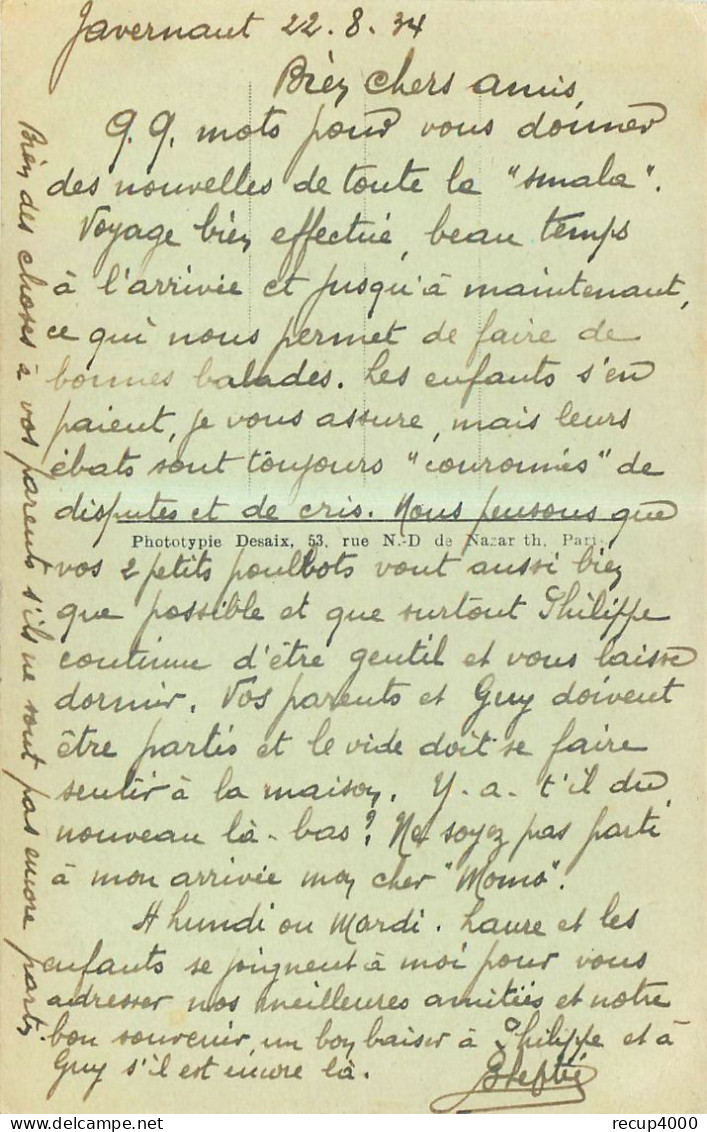 Javernaut 22.8.34
Bien chers amis,
q.q. mots pour vous donner
des nouvelles de toute la "smala".
Voyage bien effectué, beau temps
à l'arrivée et jusqu'à maintenant,
ce qui nous permet de faire de
bonnes balades. Les enfants s'en
paient, je vous assure, mais leurs
ébats sont toujours "couronnés" de
disputes et de cris. Nous pensons que
Phototypie Desaix, 53, rue N.-D de Nazar th. Paris
vos 2 petits poulbots vont aussi bien
que possible et que surtout Philippe
continue d'être gentil et vous laisse
dormir. Vos parents et Guy doivent
être partis et le vide doit se faire
sentir à la maison. Y-a-t'il du
nouveau là-bas? Ne soyez pas parti
à mon arrivée mon cher "Momo".
A Lundi ou Mardi. Laure et les
enfants se joignent à moi pour vous
adresser nos meilleures amitiés et notre
bon souvenir, un bon baiser à Philippe et à
Guy s'il est encore là.
Bien des choses à vos parents s'ils ne sont pas encore partis
recup4000